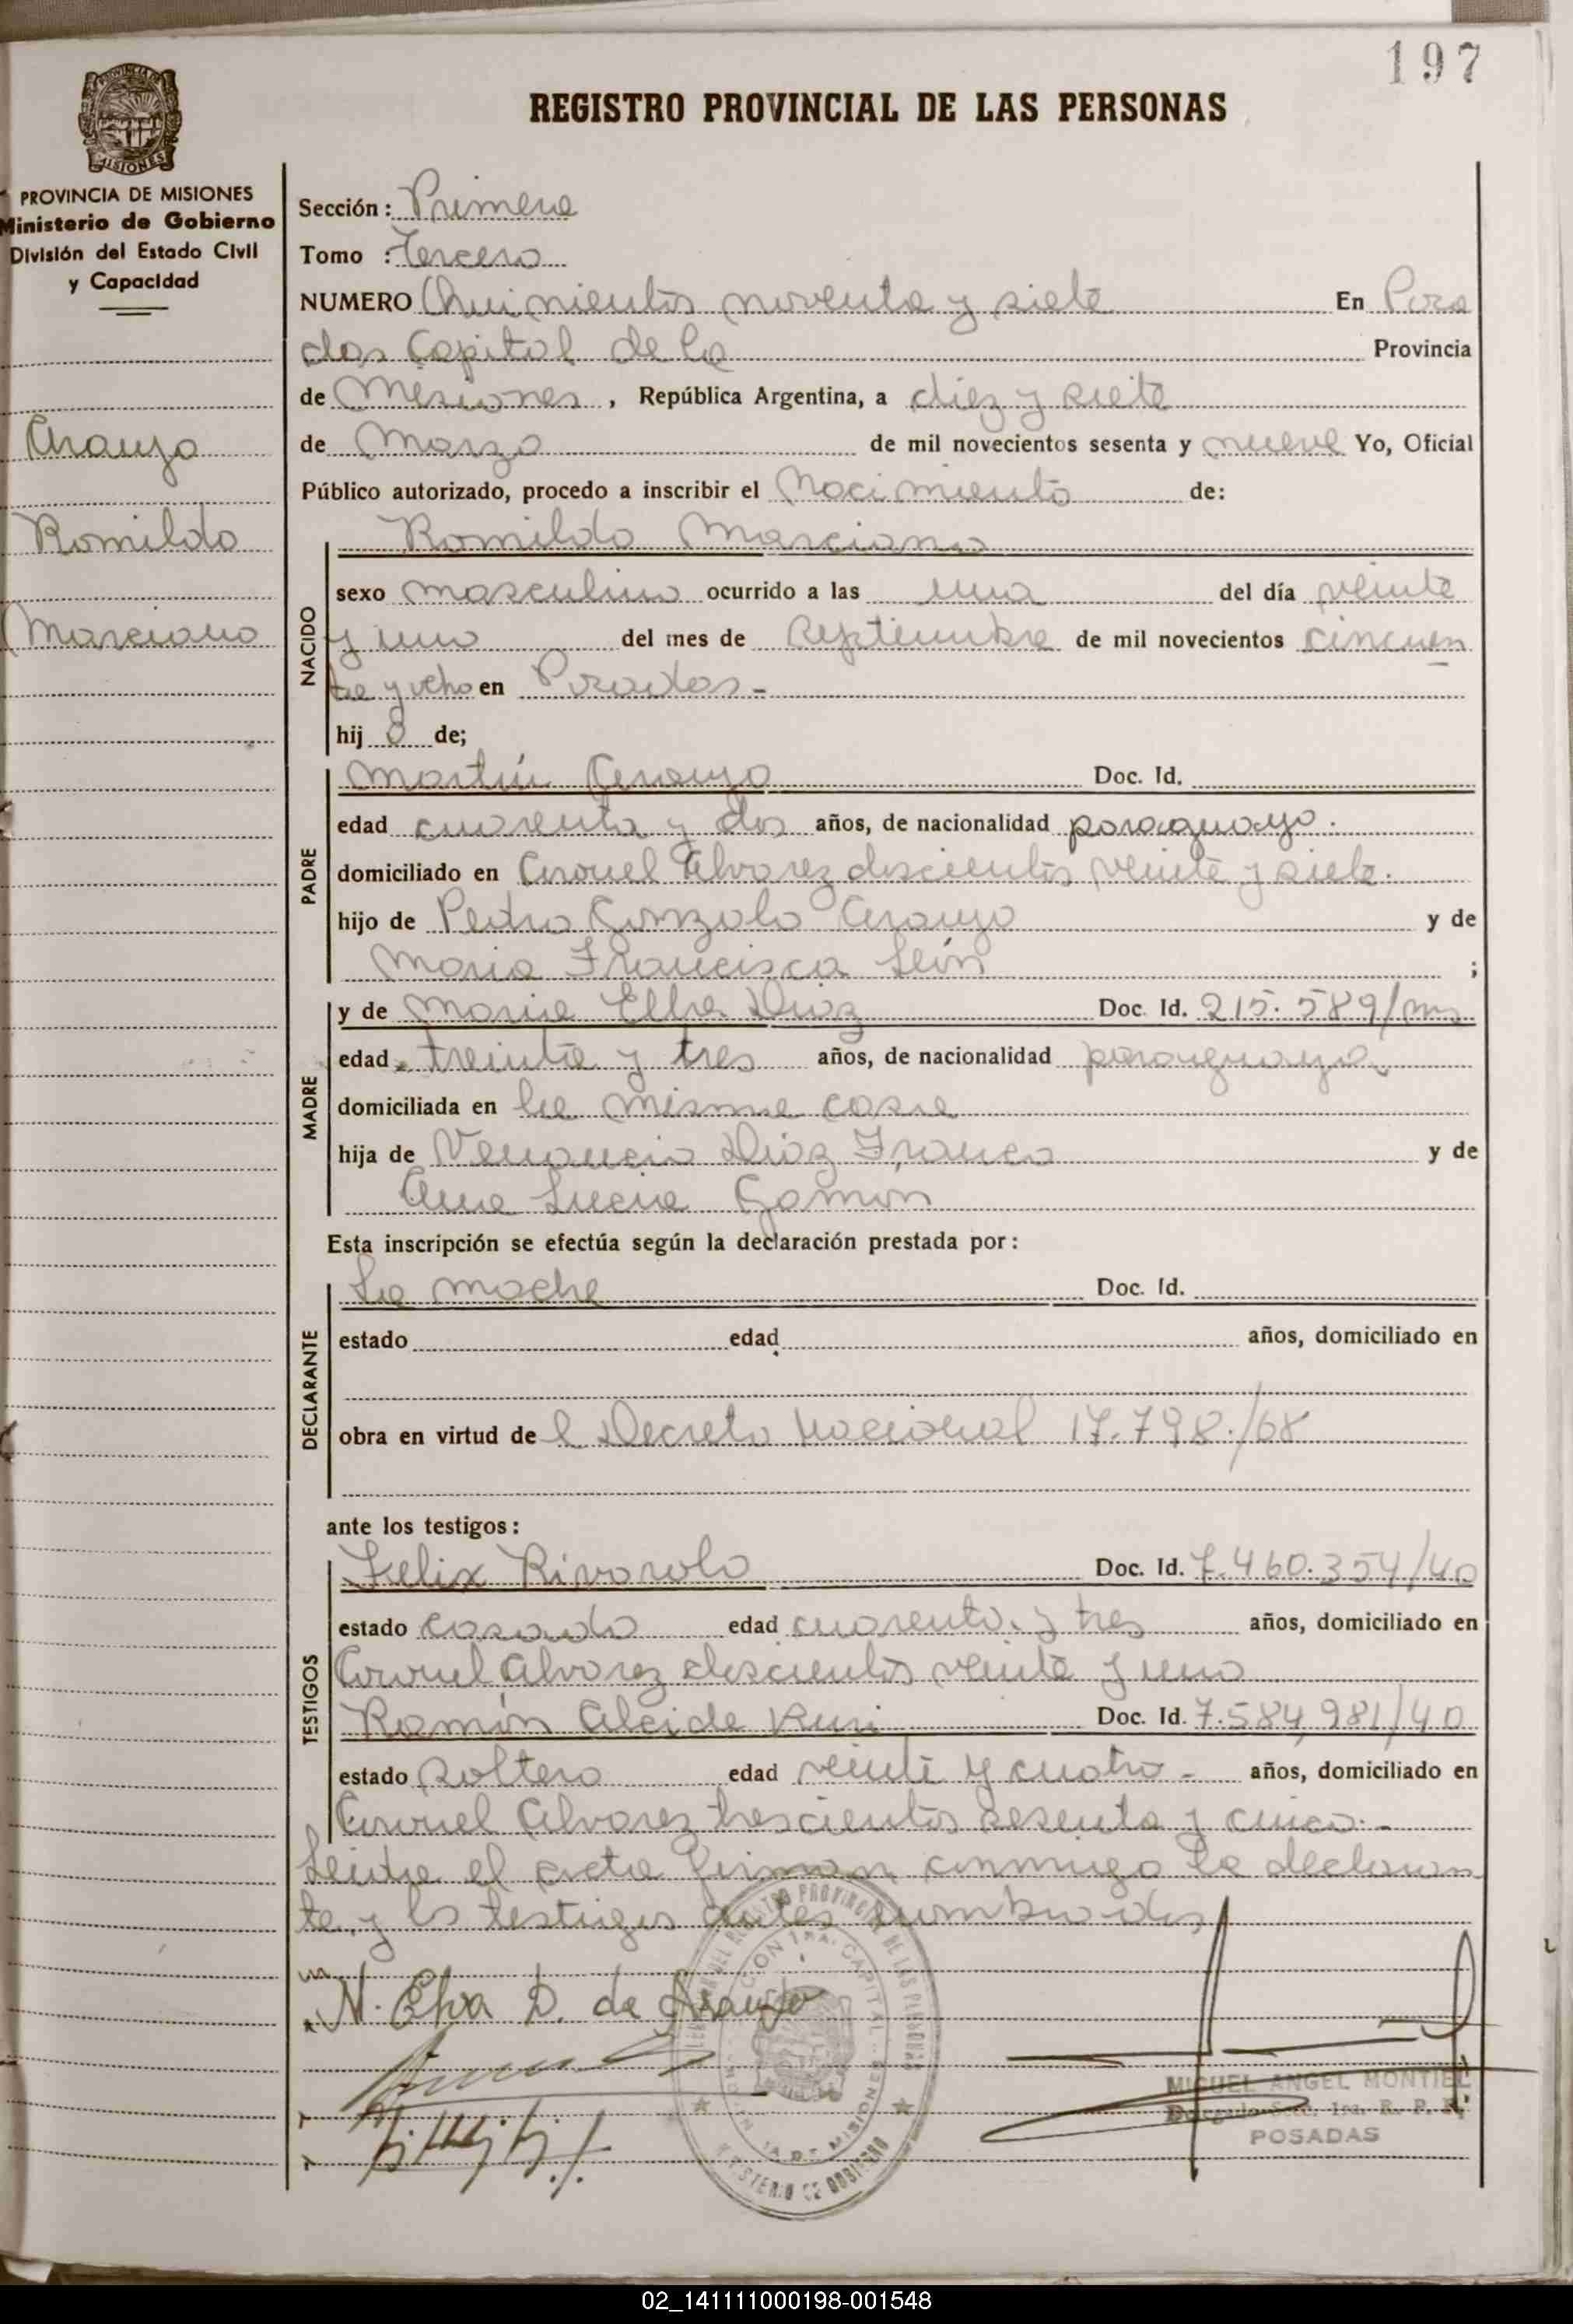 197
REGISTRO PROVINCIAL DE LAS PERSONAS
PROVINCIA DE MISIONES
MISIONES
PROVINCIA DE MISIONES
Ministerio de Gobierno
División del Estado Civil
y Capacidad
Araujo
Romildo
Marciano
Sección: Primera
Tomo : Tercero
NUMERO Quinientos noventa y siete En Posa
das Capital de la Provincia
de Misiones, República Argentina, a diez y siete
de Marzo de mil novecientos sesenta y nueve Yo, Oficial
Público autorizado, procedo a inscribir el Nacimiento de:
NACIDO
Romildo Marciano
sexo masculino ocurrido a las una del día veinte
y uno del mes de Septiembre de mil novecientos cincuen
ta y ocho en Posadas-
hij o de;
PADRE
Martín Araujo Doc. Id.
edad cuarenta y dos años, de nacionalidad paraguayo.
domiciliado en Coronel Alvarez doscientos veinte y siete.
hijo de Pedro Gonzalo Araujo y de
Maria Francisca León ;
MADRE
y de Maria Elba Diaz Doc. Id. 215.589/
edad treinta y tres años, de nacionalidad paraguaya
domiciliada en la misma casa
hija de Venancio Diaz Franco y de
Ana Lucia Gamón
Esta inscripción se efectúa según la declaración prestada por:
DECLARANTE
La madre Doc. Id.
estado edad años, domiciliado en
obra en virtud de l Decreto Nacional 17.798./68
ante los testigos:
TESTIGOS
Felix Rivarola Doc. Id. 7.460.354/40
estado casado edad cuarenta y tres años, domiciliado en
Coronel Alvarez doscientos veinte y uno
Ramón Alcide Doc. Id. 7.584,981/40
estado soltero edad veinte y cuatro- años, domiciliado en
Coronel Alvarez trescientos sesenta y cinco.-
Leida el acta firman conmigo la declaran
te y los testigos antes nombrados
M. Elva D. de Araujo
MIGUEL ANGEL MONTIEL
Delegado Secc. 1ra. R. P. P.
POSADAS
02_141111000198-001548